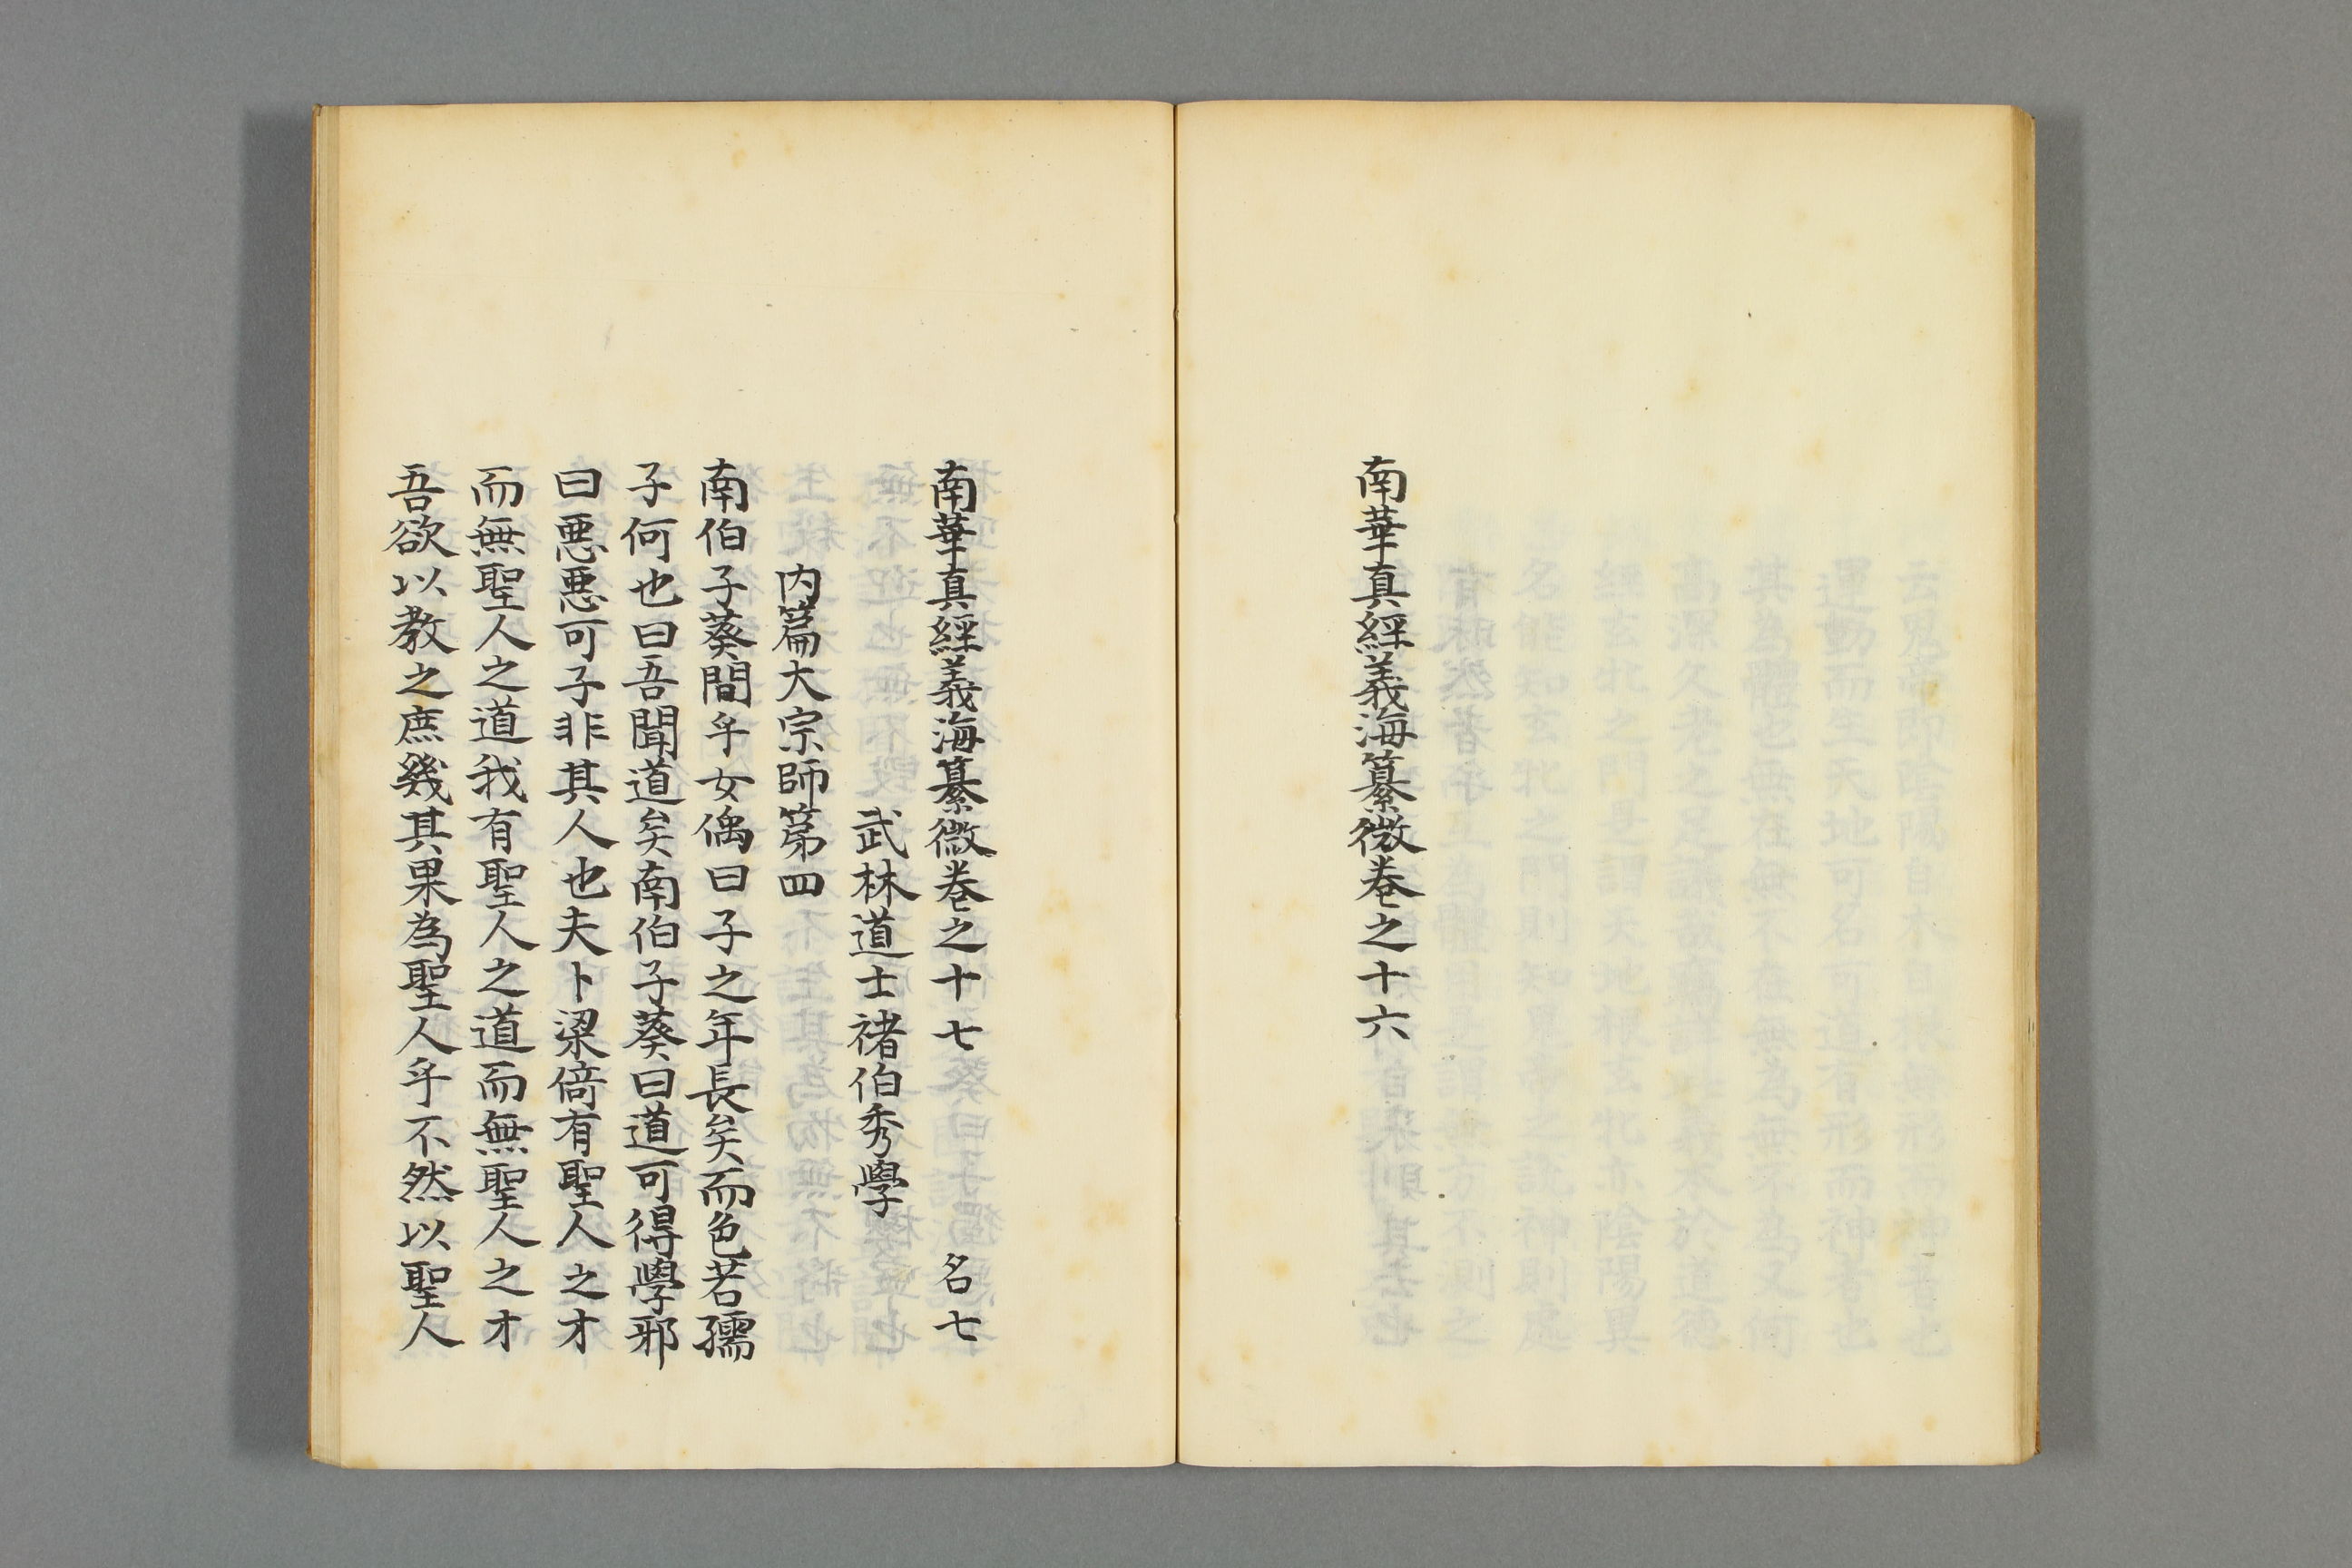 南華真經義海纂微卷之十六
南華真經義海纂微卷之十七 名七
武林道士褚伯秀學
内篇大宗師第四
南伯子葵問乎女偊曰子之年長矣而色若孺
子何也曰吾聞道矣南伯子葵曰道可得學邪
曰惡惡可子非其人也夫卜梁倚有聖人之才
而無聖人之道我有聖人之道而無聖人之才
吾欲以教之庶幾其果為聖人乎不然以聖人